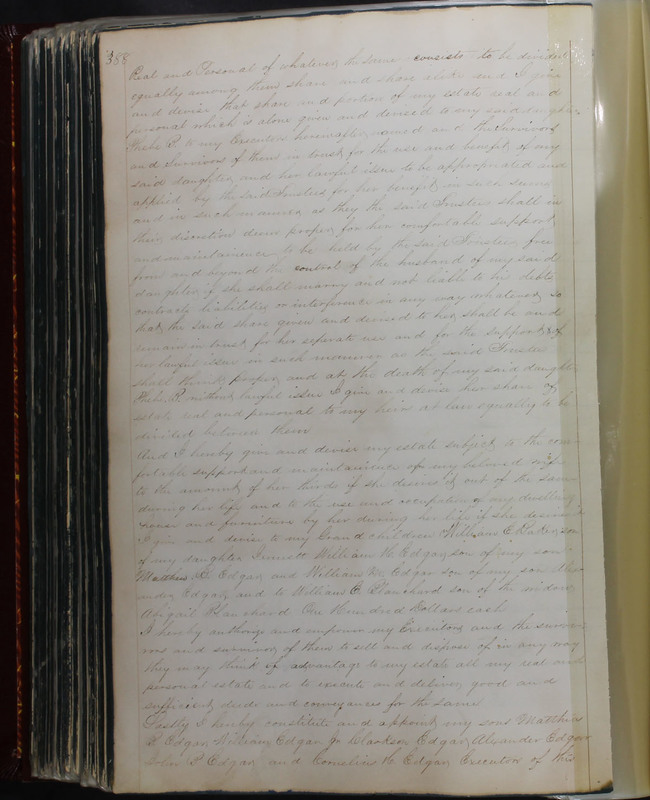 388
Real and Personal of whatever the same consists to be divided
equally among them share and share alike and I give
and devise that share and portion of my estate real and
personal which is alone given and devised to my said daughter
Phebe P. to my Executors hereinafter named and the Survivors
and Survivors of them in trust for the use and benefit of my
said daughter and her lawful issue to be appropriated and
applied by the said Trustees for her benefit in such sums
and in such manner as they the said Trustees shall in
their discretion deem proper for her comfortable support
and maintainence to be held by the said Trustees free
from and beyond the control of the husband of my said
daughter if she shall marry and not liable to his debts
contracts liabilities or interference in any way whatever so
that the said share given and devised to her shall be and
remain in trust for her seperate use and for the support of
her lawful issue in such manner as the said Trustees
shall think proper and at the death of my said daughter
Phebe P. without lawful issue I give and devise her share of
estate real and personal to my heirs at law equally to be
divided between them
And I hereby give and devise my estate subject to the com
fortable support and maintainence of my beloved wife
to the amount of her thirds if she desires it out of the same
during her life and to the use and occupation of my dwelling
house and furniture by her during her life if she desires it
I give and devise to my Grand children William E. Baker son
of my daughter William W. Edgar son of my son
Matthias Edgar and William Edgar son of my son Alex
ander Edgar and to William E. Blanchard son of the widow
Abigail Blanchard One Hundred Dollars each
I hereby authorize and empower my Executors and the surviv
ors and survivor of them to sell and dispose of in any way
they may think of advantage to my estate all my real and
personal estate and to execute and deliver good and
sufficient deeds and conveyances for the same
Lastly I hereby constitute and appoint my sons Matthias
Edgar, William Edgar Jr Clarkson Edgar, Alexander Edgar
John P Edgar and Cornelius Edgar Executors of this